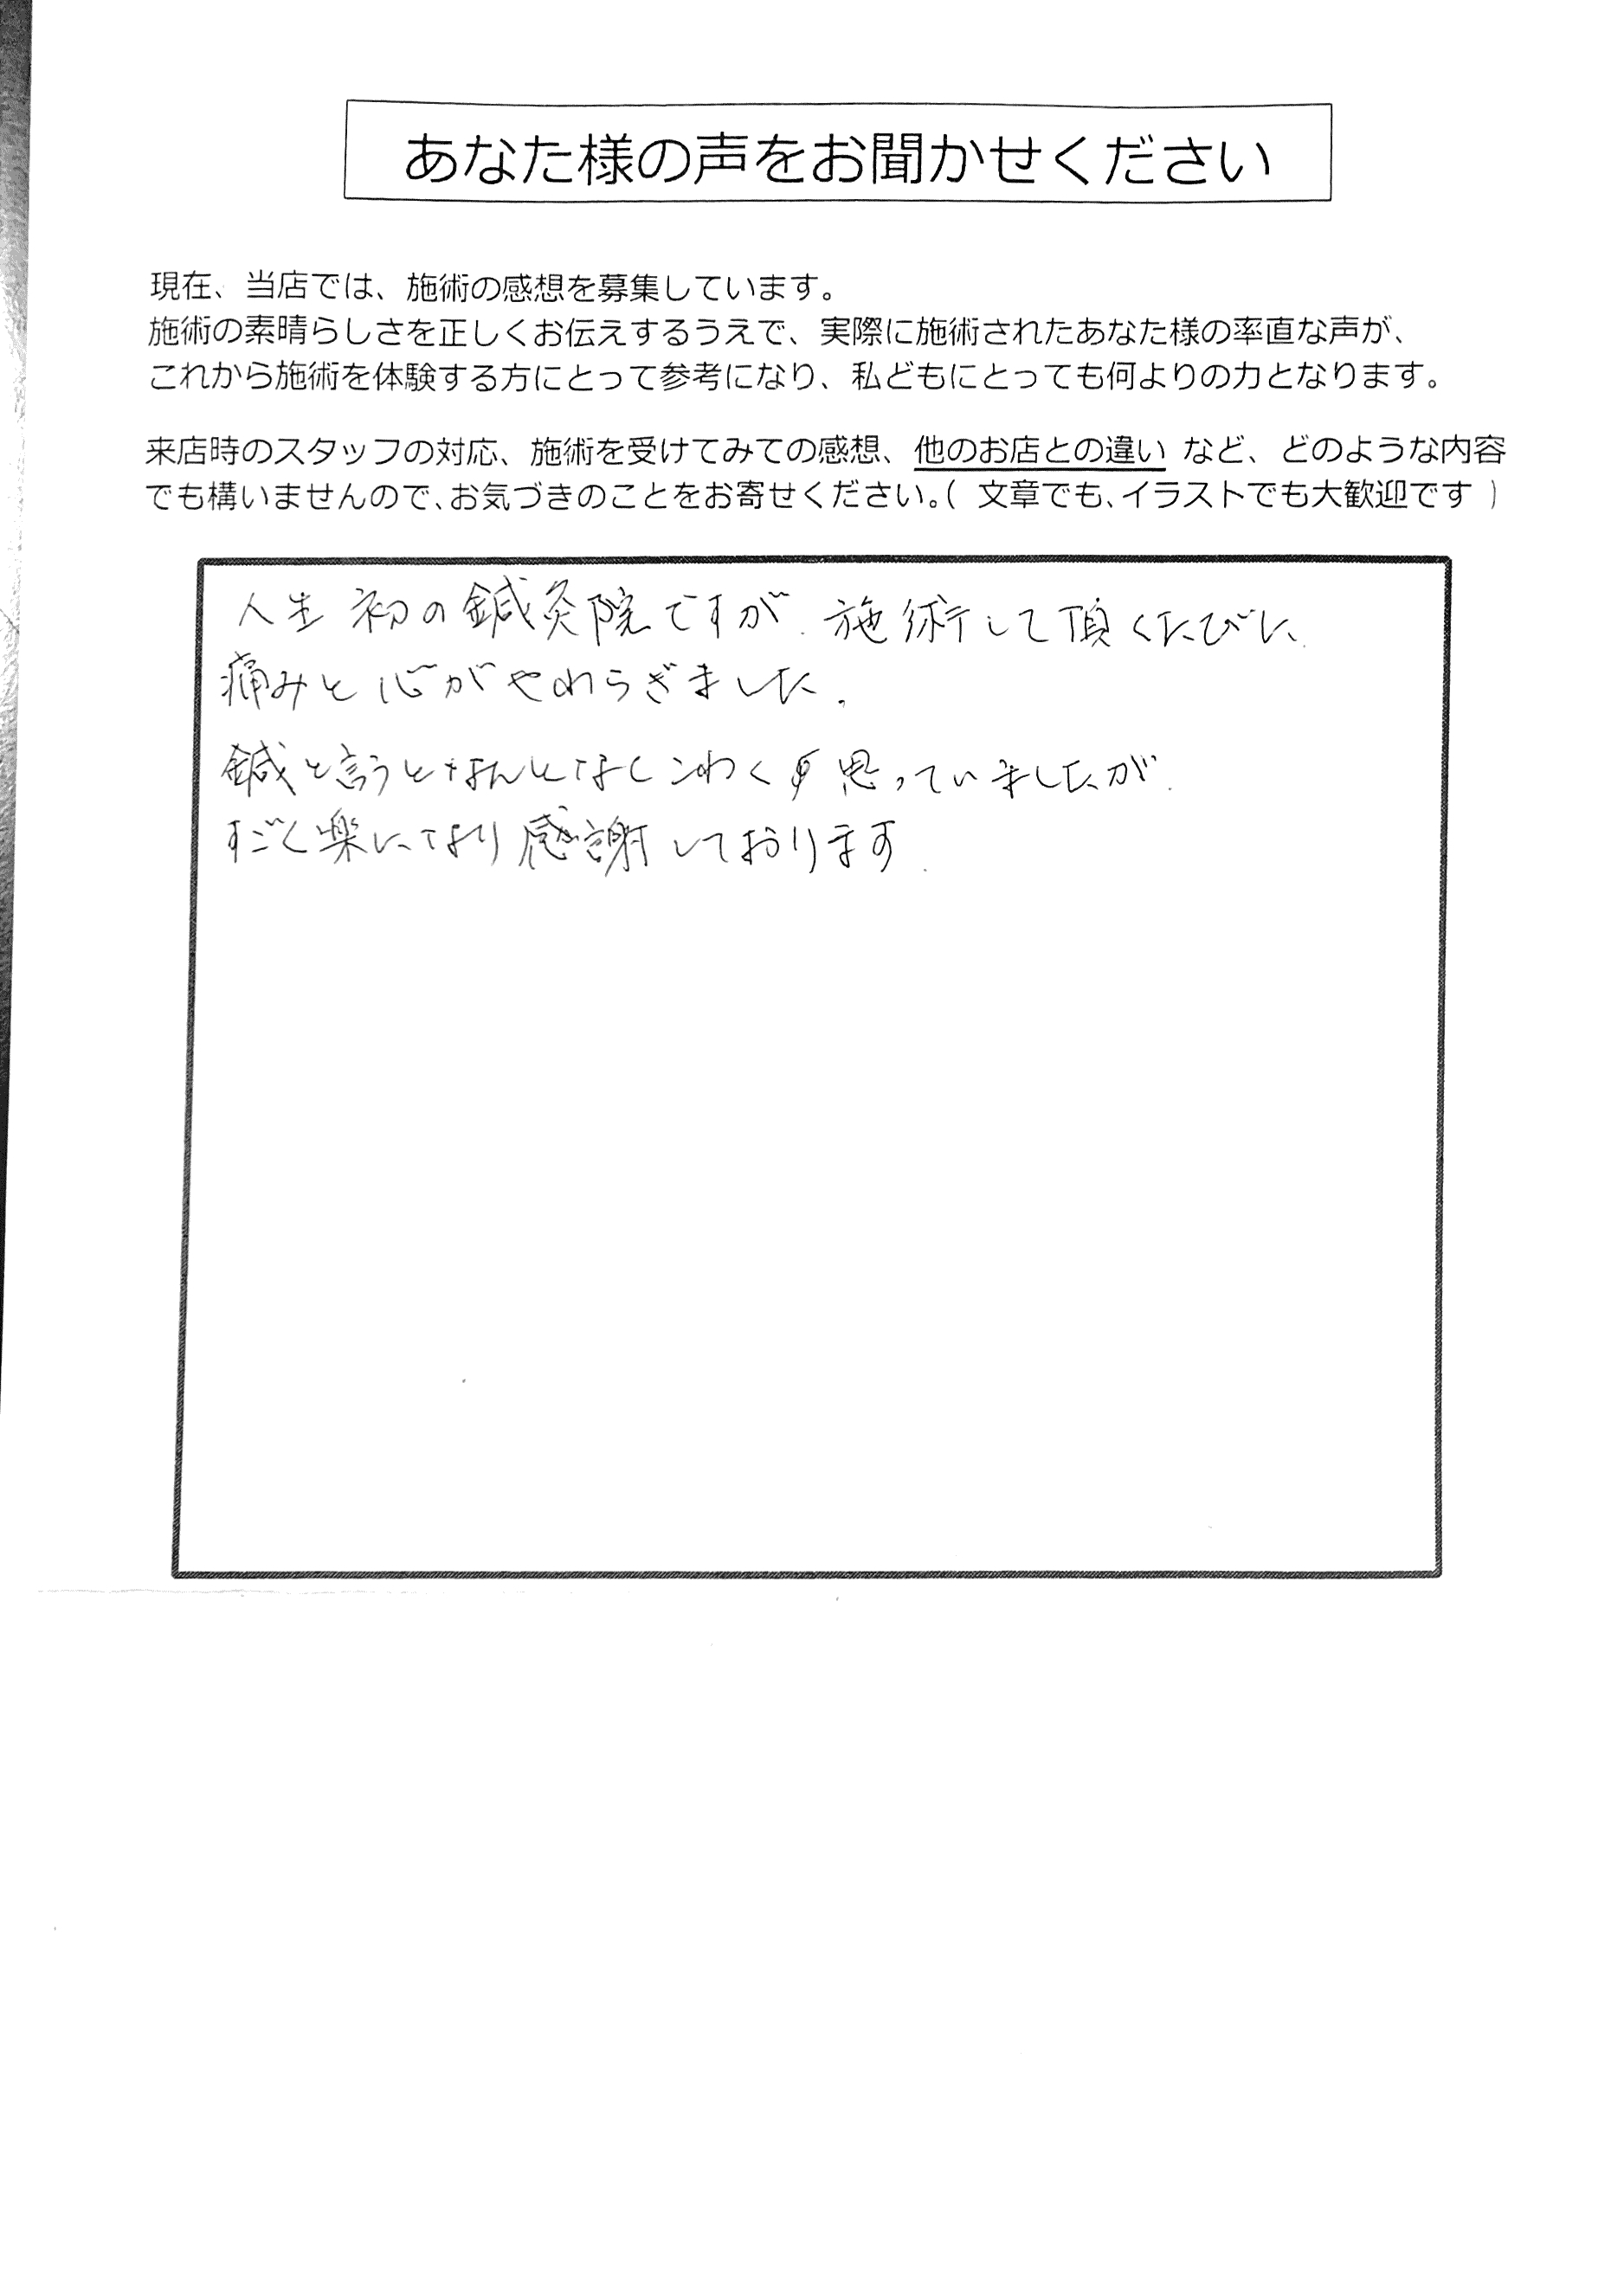 あなた様の声をお聞かせください
現在、当店では、施術の感想を募集しています。
施術の素晴らしさを正しくお伝えするうえで、実際に施術されたあなた様の率直な声が、
これから施術を体験する方にとって参考になり、私どもにとっても何よりの力となります。
来店時のスタッフの対応、施術を受けてみての感想、他のお店との違い など、どのような内容
でも構いませんので、お気づきのことをお寄せください。( 文章でも、イラストでも大歓迎です )
人生初の鍼灸院ですが、施術して頂くたびに、
痛みと心がやわらぎました。
鍼と言うとなんとなしこわく思っていましたが、
すごく楽になり感謝しております.